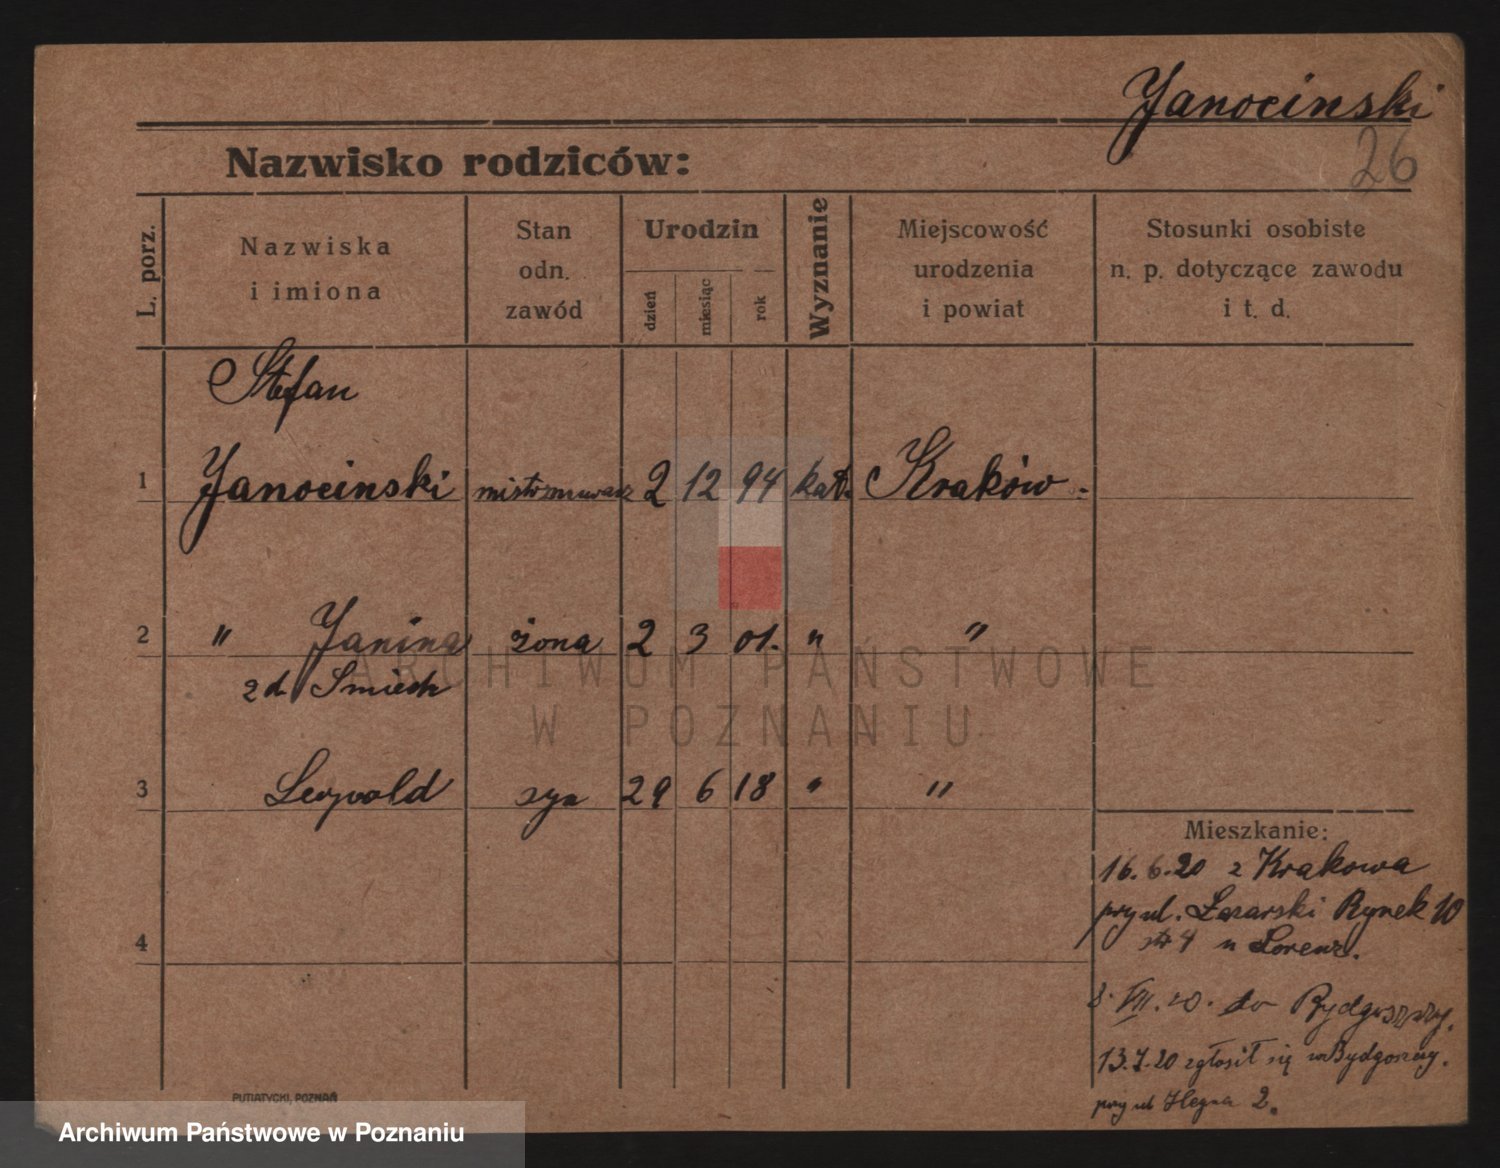 Janocinski
26
Nazwisko rodziców:
L. porz.
Nazwiska
i imiona
Stan
odn.
zawód
Urodzin
dzień
miesiąc
rok
Wyznanie
Miejscowość
urodzenia
i powiat
Stosunki osobiste
n. p. dotyczące zawodu
i t. d.
Stefan
1 Janocinski 2 12 94 kat. Kraków
2 " Janina żona 2 3 01. " "
zd Smiech
3 Leopold syn 29 6 18 " "
Mieszkanie:
16.6.20 z Krakowa
przy ul. Łazarski Rynek 10
4 u Lorenz.
4
8. VII. 20. do Bydgoszczy.
13.7.20 zgłosił się w Bydgoszczy.
przy ul 2.
PUTIATYCKI, POZNAŃ
ARCHIWUM PAŃSTWOWE
W POZNANIU
Archiwum Państwowe w Poznaniu